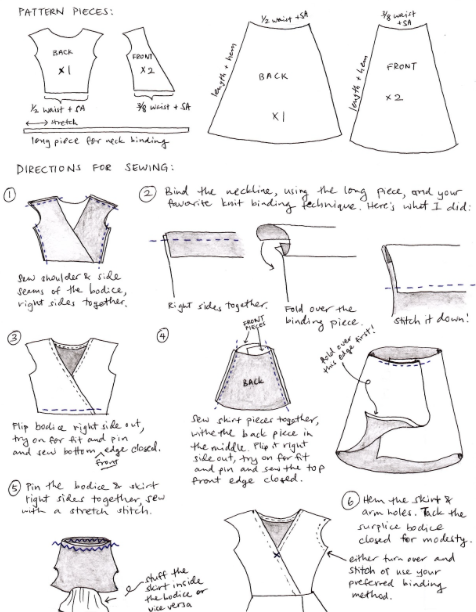 PATTERN PIECES:
BACK
x1
1/2 waist + SA
FRONT
x2
3/8 waist + SA
stretch
long piece for neck binding
1/2 waist + SA
length + hem
BACK
x1
3/8 waist + SA
length + hem
FRONT
x2
DIRECTIONS FOR SEWING:
1
Sew shoulder & side
seams of the bodice,
right sides together.
2 Bind the neckline, using the long piece, and your
favorite knit binding technique. Here's what I did:
Right sides together.
Fold over the
binding piece.
Stitch it down!
3
Flip bodice right side out,
try on for fit and pin
and sew bottom edge closed.
front
4
FRONT
PIECES
BACK
Sew skirt pieces together,
with the back piece in
the middle. Flip it right
side out, try on for fit
and pin and sew the top
front edge closed.
Fold over
this edge first!
5 Pin the bodice & skirt
right sides together, sew
with a stretch stitch.
stuff the
skirt inside
the bodice or
vice versa
6 Hem the skirt &
arm holes. Tack the
surplice bodice
closed for modesty.
either turn over and
stitch or use your
preferred binding
method.